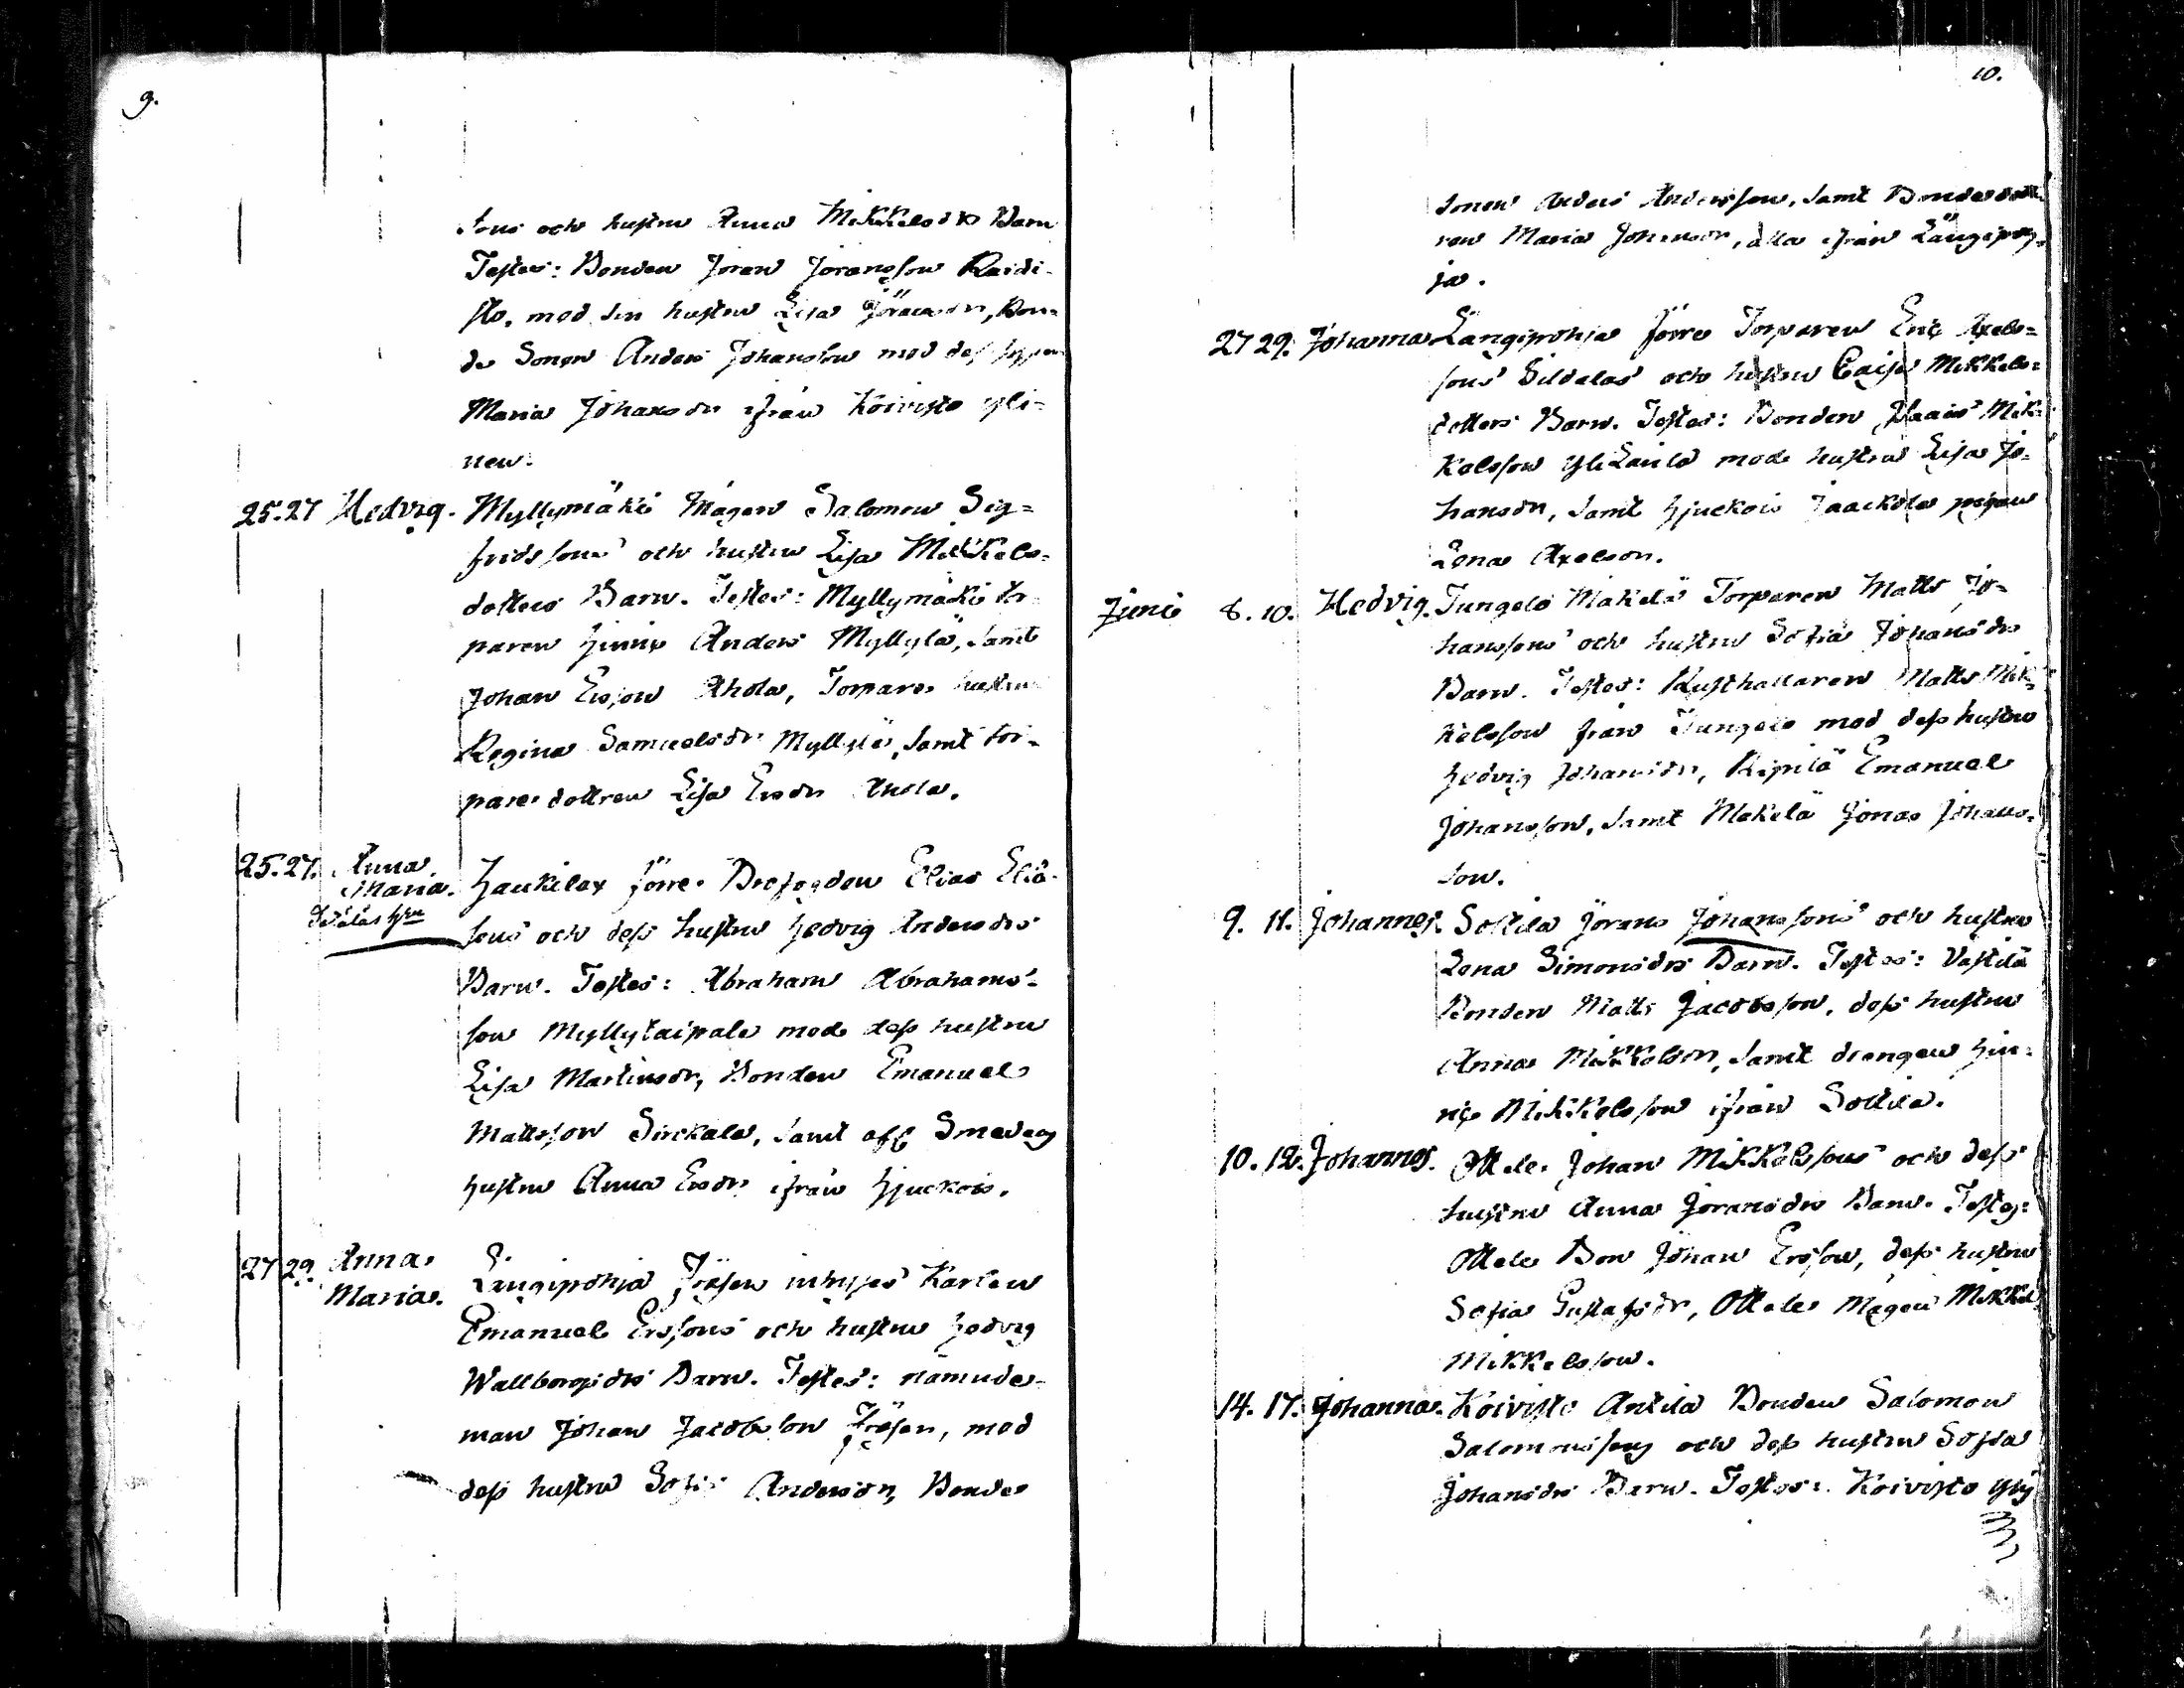 9.
sons och hustru Anna Mikkelsdrs Barn
Testes: Bonden Jöran Jöransson Raidi-
sto, med sin hustru Lisa Jöransdr, Bon=
de Sonen Anders Johansson med des
Maria Johansdr ifrån Koivisto yli=
nen.
25. 27 Hedvig. Myllymäki Mågen Salomon Sig=
fridssons och hustru Lisa Mikkels=
dotters Barn. Testes: Myllymäki tor-
paren Hinric Anders Myllylä, samt
Johan Ersson Ahola, Torpare hustrun
Regina Samuelsdr Myllylä, samt tor-
pare dottren Lisa Ersdr Ahola.
25. 27. Anna
Maria. Haukilax förre Brofogden Elias Elia-
sons och dess hustru Hedvig Andersdrs
Barn. Testes: Abraham Abrahams-
son Myllytaipale med dess hustru
Lisa Martinsdr, Bonden Emanuel
Mattsson Sirckala, samt aff Smedens
hustru Anna Ersdr ifrån Hjuckois.
27 29. Anna
Maria. Längipohja inhyses Karlen
Emanuel Erssons och hustru Hedvig
Wallborgsdrs Barn. Testes: nämnde-
man Johan Jacobsson med
dess hustru Sofia Andersdr, Bonde
10.
sonen Anders Andersson, samt Bondedott
ren Maria Johansdr, alla ifrån Längipoh-
ja.
27 29. Johanna Längipohja förre Torparen Eric Axels=
sons Sildalas och hustru Caisa Mikkels=
dotters Barn. Testes: Bonden Mik-
kelsson Yli Laula med hustru Lisa Jo-
hansdr, samt Hjuckois Jaackola pigan
Lena Axelsdr.
Junii 8. 10. Hedvig. Jungelo Makelä Torparen Matts Jo-
hanssons och hustru Sofia Johansdrs
Barn. Testes: Rusthållaren Matts Mik=
kelsson från Jungelo med dess hustru
Hedvig Johansdr, Ripilä Emanuel
Johansson, samt Makelä Jonas Johans-
son.
9. 11. Johannes. Sottila Jörans Johanssons och hustru
Lena Simonsdrs Barn. Testes: Vastilä
Bonden Matts Jacobsson, dess hustru
Anna Mikkelsdr, samt drengen Hin-
ric Mikkelsson ifrån Sottila.
10. 12. Johannes. Ottele Johan Mikkelssons och dess
hustru Anna Joransdrs Barn. Testes:
Ottele Bon Johan Ersson, dess hustru
Sofia Gustafsdr, Ottele Mågen Mikkel
Mikkelsson.
14. 17. Johanna. Koivisto Antila Bonden Salomon
Salomonssons och dess hustru Sofia
Johansdrs Barn. Testes: Koivisto yly